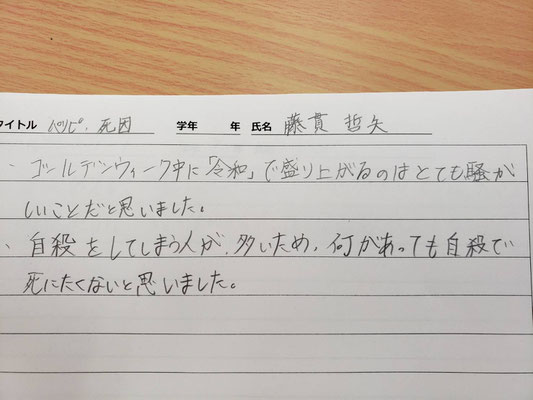 タイトル パリピ、死因 学年 年 氏名 藤貫 哲矢
・ゴールデンウィーク中に「令和」で盛り上がるのはとても騒が
しいことだと思いました。
・自殺をしてしまう人が、多いため、何があっても自殺で
死にたくないと思いました。